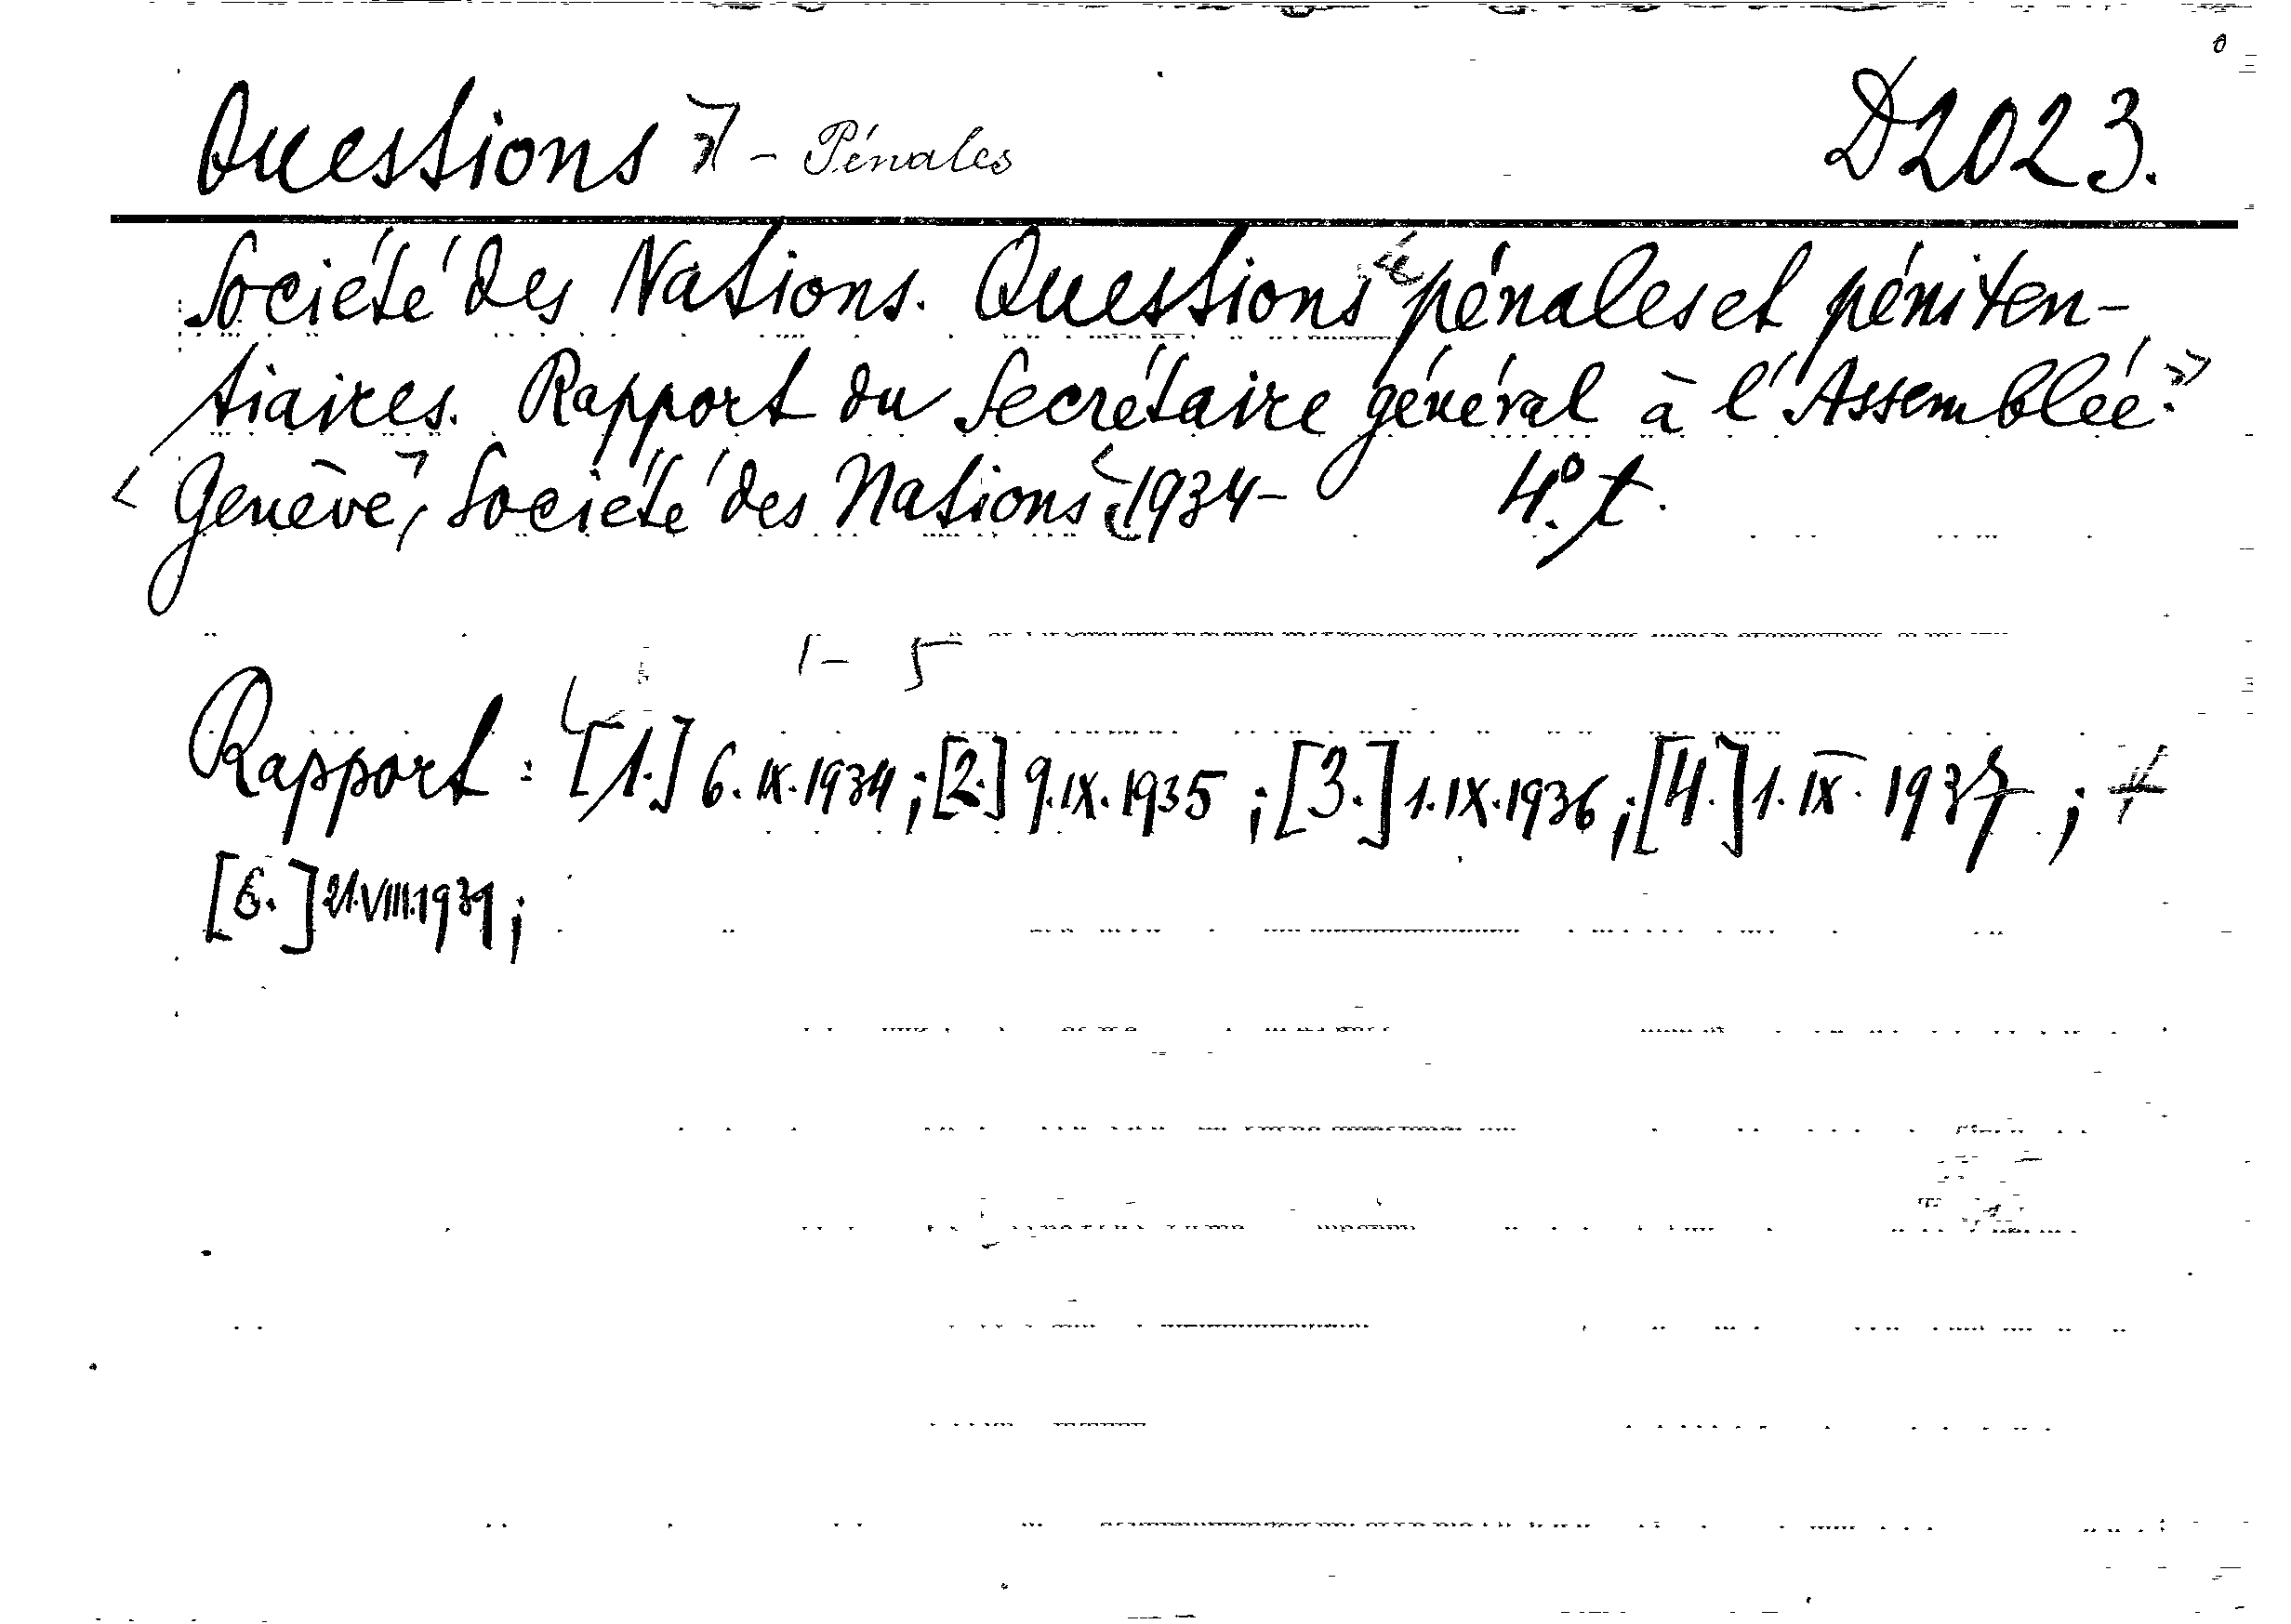 Questions - Pénales D2023.
Société des Nations. Questions pénales et péniten-
tiaires. Rapport du Secrétaire général à l'Assemblée.
Genève, Société des Nations, 1934- 4º. t.
1- 5
Rapport: [1.] 6.IX.1934; [2.] 9.IX.1935; [3.] 1.IX.1936; [4.] 1.IX.1937; +
[6.] 21.VIII.1939;